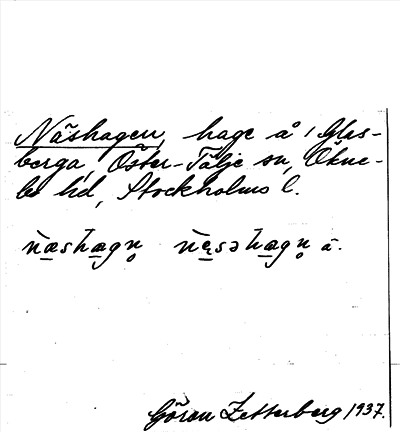 Näshagen, hage å 1 Glas-
berga, Öster-Tälje sn, Ökne-
bo hd, Stockholms l.
næshagn̥ nęsəhagn̥ a-.
Göran Zetterberg 1937.